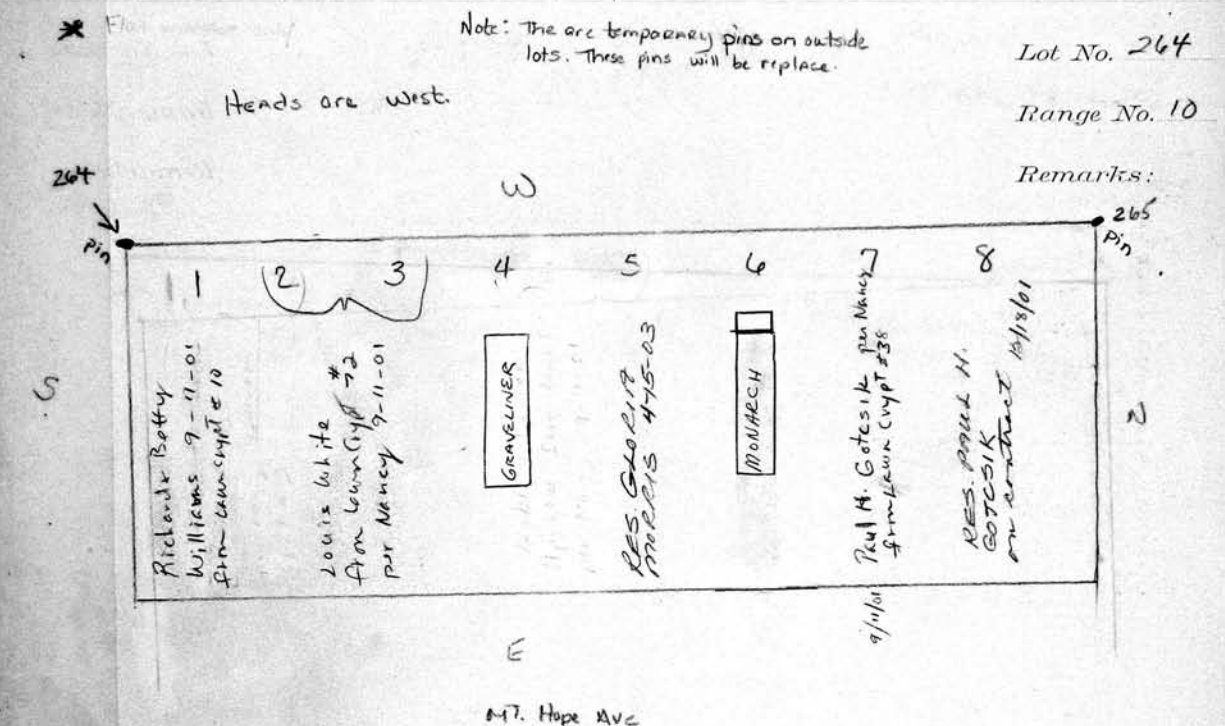 Note: The are temporary pins on outside
lots. These pins will be replace.
Lot No. 264
Heads are West.
Range No. 10
Remarks:
264
W
265
Pin
Pin
1
2
3
4
5
6
7
8
S
Richard & Betty
Williams 9-11-01
from Lawn crypt # 10
Louis White
from Lawn Crypt # 72
per Nancy 9-11-01
GRAVELINER
RES. GLORIA
MORRIS
MONARCH
Paul H. Gotcsik per Nancy
from Lawn Crypt #38
9/11/01
RES. PAUL H.
GOTCSIK
on contract 12/18/01
N
E
MT. Hope Ave